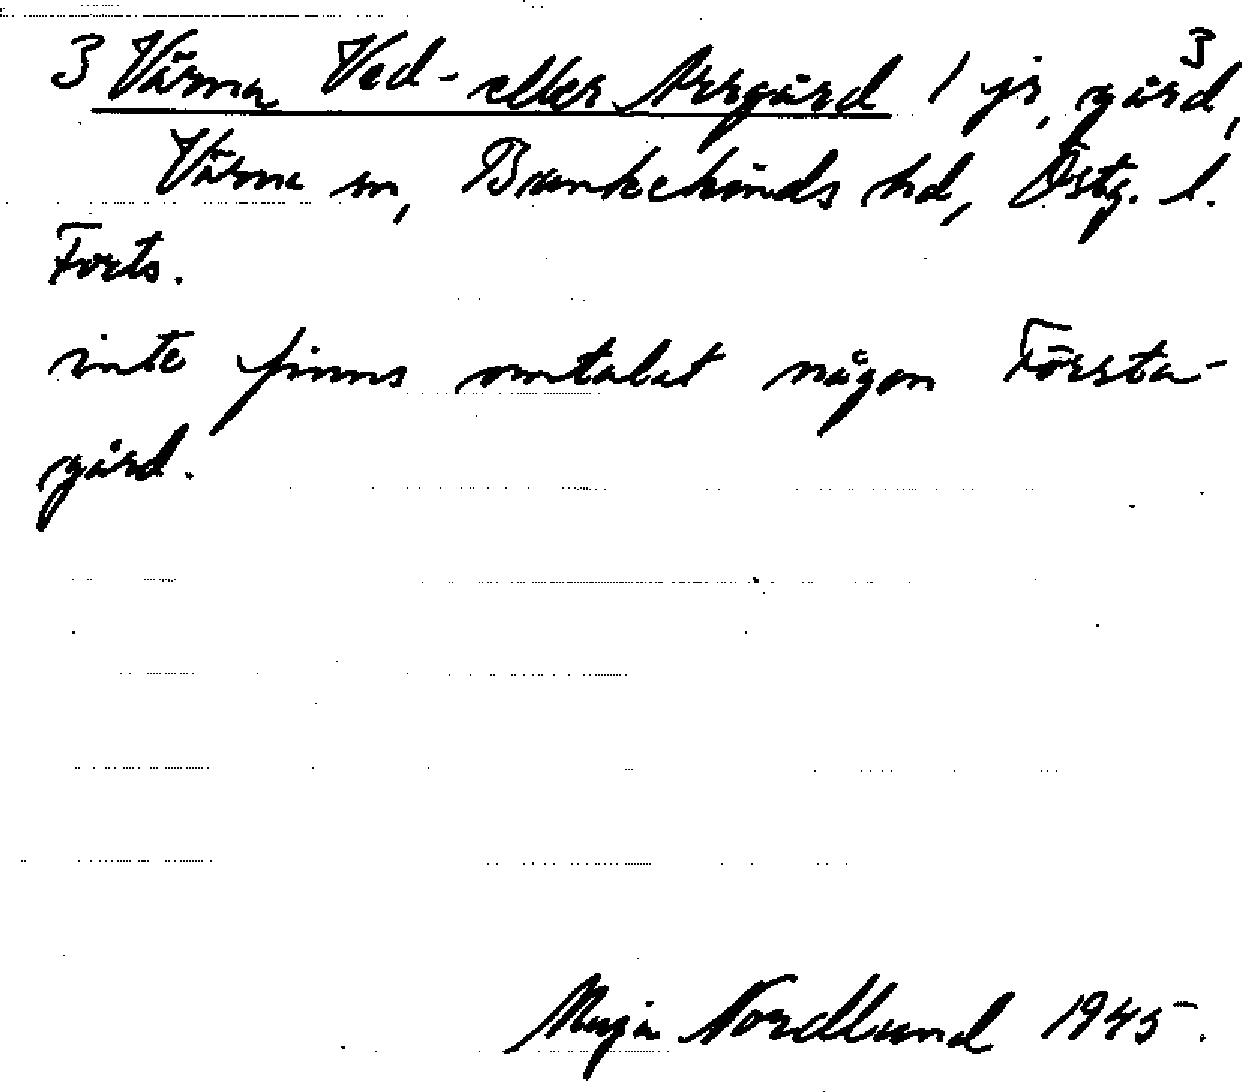 3 Värna Ved- eller Arsgård 1 js, gård, 3
Värna sn, Bankekinds hd, Östg. l.
Forts.
inte finns omtalat någon Första-
gård.
Maja Nordlund 1945.